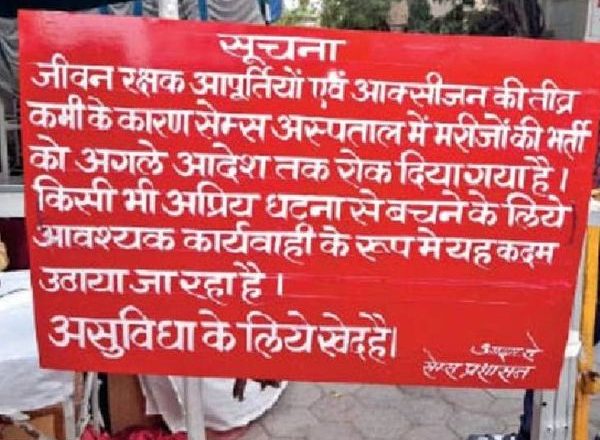 सूचना
जीवन रक्षक आपूर्तियों एवं आक्सीजन की तीव्र
कमी के कारण सेम्स अस्पताल में मरीजों की भर्ती
को अगले आदेश तक रोक दिया गया है।
किसी भी अप्रिय घटना से बचने के लिये
आवश्यक कार्यवाही के रूप मे यह कदम
उठाया जा रहा है।
असुविधा के लिये खेद है।
सेम्स प्रशासन